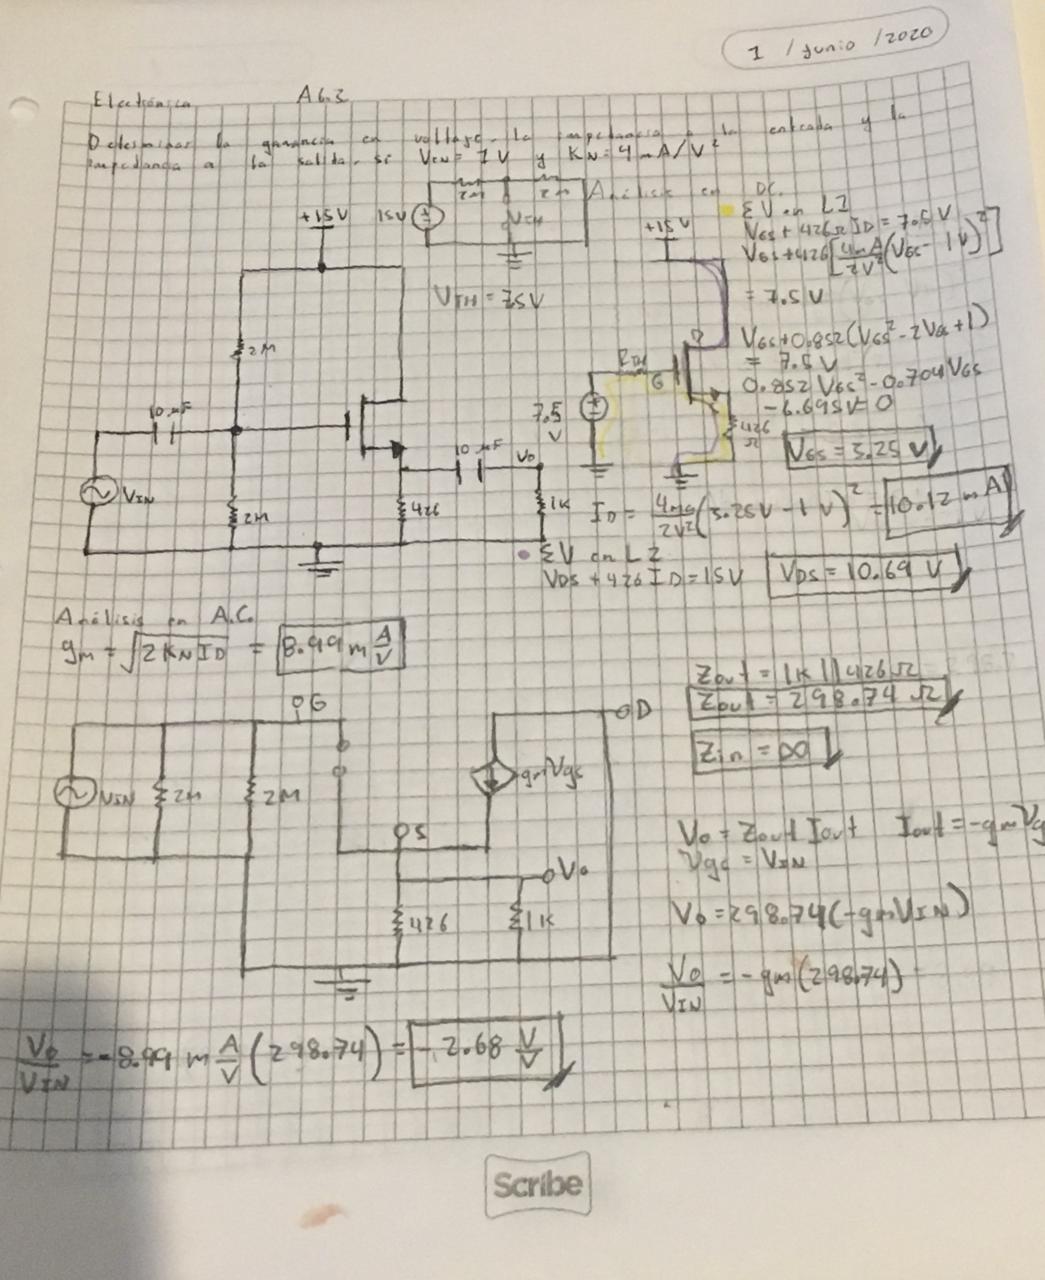 1 / Junio / 2020
Electrónica A6.3
Determinar la ganancia en voltaje, la impedancia a la entrada y la
impedancia a la salida, si VIN = 1V y KN = 4 mA/V²
2M 2M
15V VTH
VTH = 7.5V
+15V
2M
10 µF
VIN
2M
10 µF Vo
426 1K
Análisis en DC.
+15V
D
RTH G
7.5 V
426 Ω
ΣV en L1
VGS + 426Ω ID = 7.5V
VGS + 426[4mA/2V² (VGS - 1V)²]
= 7.5V
VGS + 0.852(VGS² - 2VGS + 1)
= 7.5V
0.852 VGS² - 0.704 VGS
- 6.695V = 0
VGS = 3.25 V
ID = 4mA/2V² (3.25V - 1V)² = 10.12 mA
ΣV en L2
VDS + 426 ID = 15V VDS = 10.69 V
Análisis en A.C.
gm = √2 KN ID = 8.99 m A/V
G
VIN 2M 2M
D
gmVgs
S
Vo
426 1K
Zout = 1K || 426Ω
Zout = 298.74 Ω
Zin = ∞
Vo = Zout Iout Iout = -gmVg
Vgs = VIN
Vo = 298.74(-gmVIN)
Vo/VIN = -gm(298.74)
Vo/VIN = -8.99 m A/V (298.74) = -2.68 V/V
Scribe